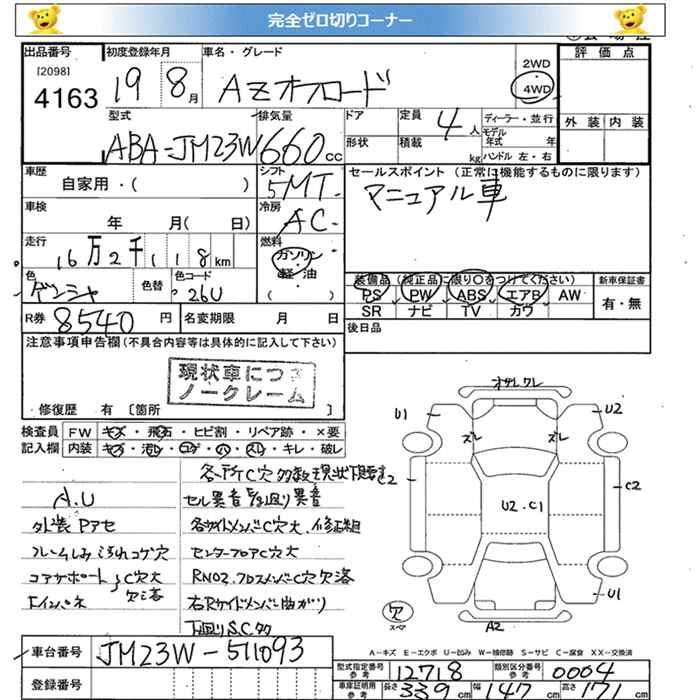 完全ゼロ切りコーナー
出品番号 初度登録年月 車名・グレード 評価点
[2098] 4163 19 8月 AZオフロード 2WD・4WD
外装 内装
型式 排気量 ドア 定員 4人 ディーラー・並行
ABA-JM23W 660cc 形状 積載 kg モデル年式 年
ハンドル 左・右
車歴 シフト セールスポイント (正常に機能するものに限ります)
自家用・( ) 5MT マニュアル車
車検 年 月( 日) 冷房 AC
走行 16万2千118km 燃料 ガソリン
軽油
( )
色 色替 色コード 26U
装備品 (純正品に限り○をつけてください) 新車保証書
PS PW ABS エアB AW 有・無
SR ナビ TV カワ
R券 8540円 名変期限 月 日 後日品
注意事項申告欄(不具合内容等は具体的に記入して下さい)
現状車につき
ノークレーム
修復歴 有 [箇所 ]
検査員 FW キズ・飛石・ヒビ割・リペア跡・×要
記入欄 内装 キズ・汚レ・コゲ・穴・スレ・キレ・破レ
A.U
外装Pアセ
各所C穴多数現状下廻り
セル異音
各サイドメンバC穴大、修正組
センターフロアC穴大
コアサポート C穴大
右Rサイドメンバー曲がり
下廻りS.C多
U1 U2
ズレ ズレ
C2 U2.C1 C2
U1
穴 A2
A-キズ E-エクボ U-凹み W-補修跡 S-サビ C-腐食 XX-交換済
車台番号 JM23W-511093
登録番号
型式指定番号 参考 12718 類別区分番号 参考 0004
車庫証明用 参考 長さ 339cm 幅 147cm 高さ 171cm